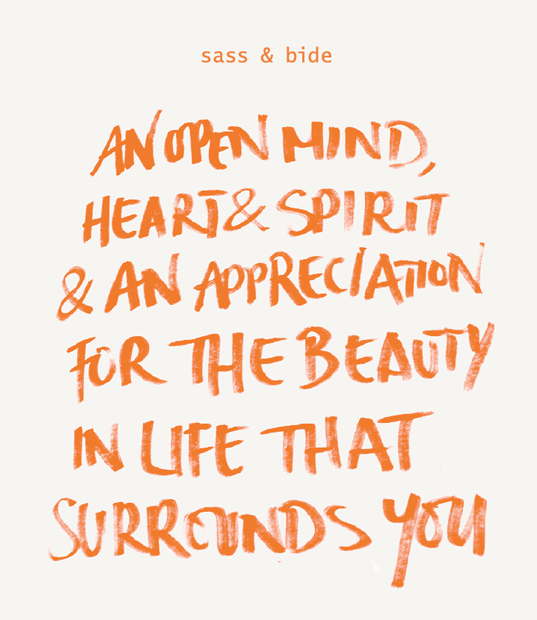 sass & bide
AN OPEN MIND,
HEART & SPIRIT
& AN APPRECIATION
FOR THE BEAUTY
IN LIFE THAT
SURROUNDS YOU